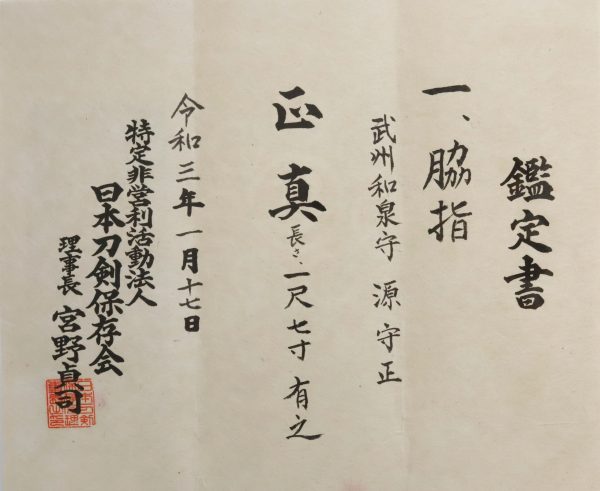 鑑定書
一、脇指
武州和泉守 源守正
正真
長さ、一尺七寸 有之
令和三年一月十七日
特定非営利活動法人
日本刀剣保存会
理事長 宮野貞司